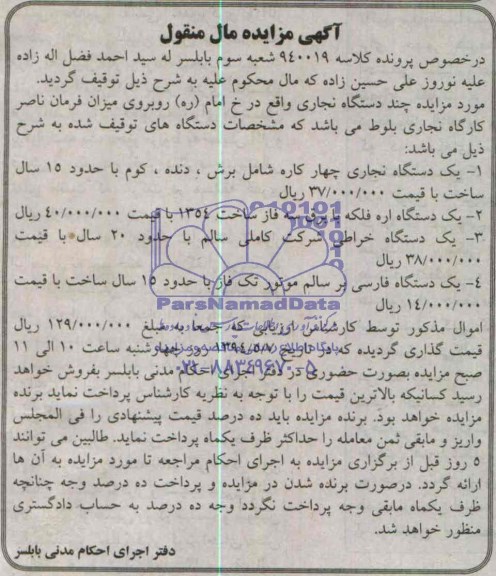 آگهی مزایده مال منقول
درخصوص پرونده کلاسه ۹۴۰۰۱۹ شعبه سوم بابلسر له سید احمد فضل اله زاده
علیه نوروز علی حسین زاده که مال محکوم علیه به شرح ذیل توقیف گردید.
مورد مزایده چند دستگاه نجاری واقع در خ امام (ره) روبروی میزان فرمان ناصر
کارگاه نجاری بلوط می باشد که مشخصات دستگاه های توقیف شده به شرح
ذیل می باشد:
۱- یک دستگاه نجاری چهار کاره شامل برش ، دنده ، کوم با حدود ۱۵ سال
ساخت با قیمت ۳۷/۰۰۰/۰۰۰ ریال
۲- یک دستگاه اره فلکه با برق سه فاز ساخت ۱۳۵۴ با قیمت ۴۰/۰۰۰/۰۰۰ ریال
۳- یک دستگاه خراطی شرکت کاملی سالم با حدود ۲۰ سال با قیمت
۳۸/۰۰۰/۰۰۰ ریال
۴- یک دستگاه فارسی بر سالم موتور تک فاز با حدود ۱۵ سال ساخت با قیمت
۱۴/۰۰۰/۰۰۰ ریال
ParsNamadData
اموال مذکور توسط کارشناس ارزیابی که جمعا به مبلغ ۱۲۹/۰۰۰/۰۰۰ ریال
قیمت گذاری گردیده که در تاریخ ۱۳۹۴/۵/۷ روز چهارشنبه ساعت ۱۰ الی ۱۱
۰۲۱-۸۸۳۴۹۶۷۰-۵
صبح مزایده بصورت حضوری در دفتر اجرای احکام مدنی بابلسر بفروش خواهد
رسید کسانیکه بالاترین قیمت را با توجه به نظریه کارشناس پرداخت نماید برنده
مزایده خواهد بود. برنده مزایده باید ده درصد قیمت پیشنهادی را فی المجلس
واریز و مابقی ثمن معامله را حداکثر ظرف یکماه پرداخت نماید. طالبین می توانند
۵ روز قبل از برگزاری مزایده به اجرای احکام مراجعه تا مورد مزایده به آن ها
ارائه گردد. درصورت برنده شدن در مزایده و پرداخت ده درصد وجه چنانچه
ظرف یکماه مابقی وجه پرداخت نگردد وجه ده درصد به حساب دادگستری
منظور خواهد شد.
دفتر اجرای احکام مدنی بابلسر